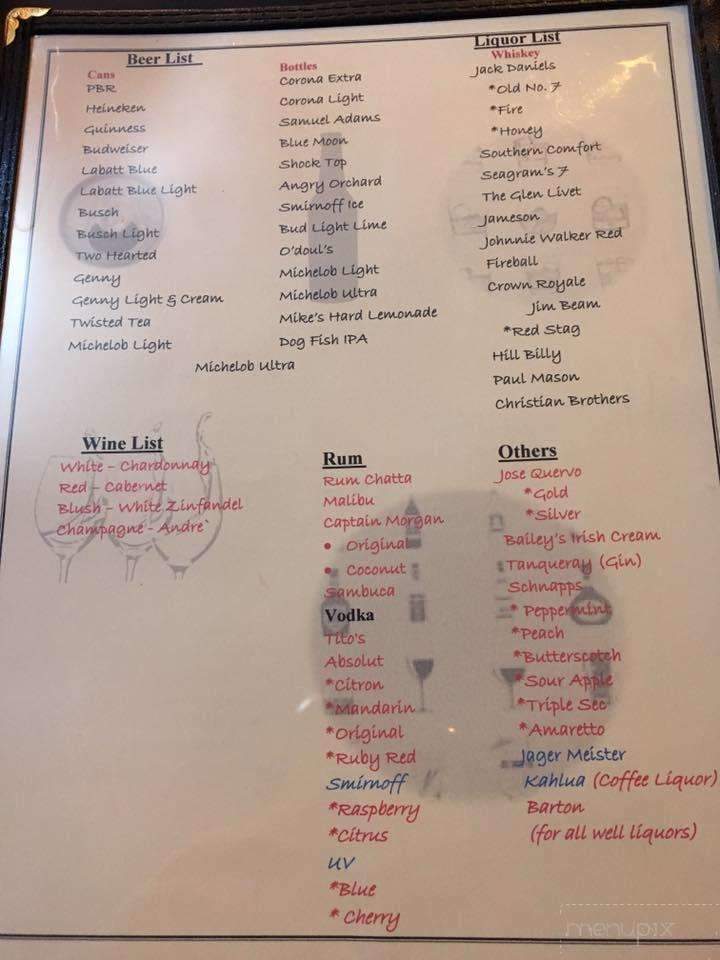 Beer List
Cans
PBR
Heineken
Guinness
Budweiser
Labatt Blue
Labatt Blue Light
Busch
Busch Light
Two Hearted
Genny
Genny Light & Cream
Twisted Tea
Michelob Light
Michelob Ultra
Bottles
Corona Extra
Corona Light
Samuel Adams
Blue Moon
Shock Top
Angry Orchard
Smirnoff Ice
Bud Light Lime
O'doul's
Michelob Light
Michelob Ultra
Mike's Hard Lemonade
Dog Fish IPA
Liquor List
Whiskey
Jack Daniels
*Old No. 7
*Fire
*Honey
Southern Comfort
Seagram's 7
The Glen Livet
Jameson
Johnnie Walker Red
Fireball
Crown Royale
Jim Beam
*Red Stag
Hill Billy
Paul Mason
Christian Brothers
Wine List
White – Chardonnay
Red – Cabernet
Blush – White Zinfandel
Champagne - Andre`
Rum
Rum Chatta
Malibu
Captain Morgan
• Original
• Coconut
Sambuca
Vodka
Tito's
Absolut
*Citron
*Mandarin
*Original
*Ruby Red
Smirnoff
*Raspberry
*Citrus
UV
*Blue
* Cherry
Others
Jose Quervo
*Gold
*Silver
Bailey's Irish Cream
Tanqueray (Gin)
Schnapps
* Peppermint
*Peach
*Butterscotch
*Sour Apple
*Triple Sec
*Amaretto
Jager Meister
Kahlua (Coffee Liquor)
Barton
(for all well liquors)
menupix